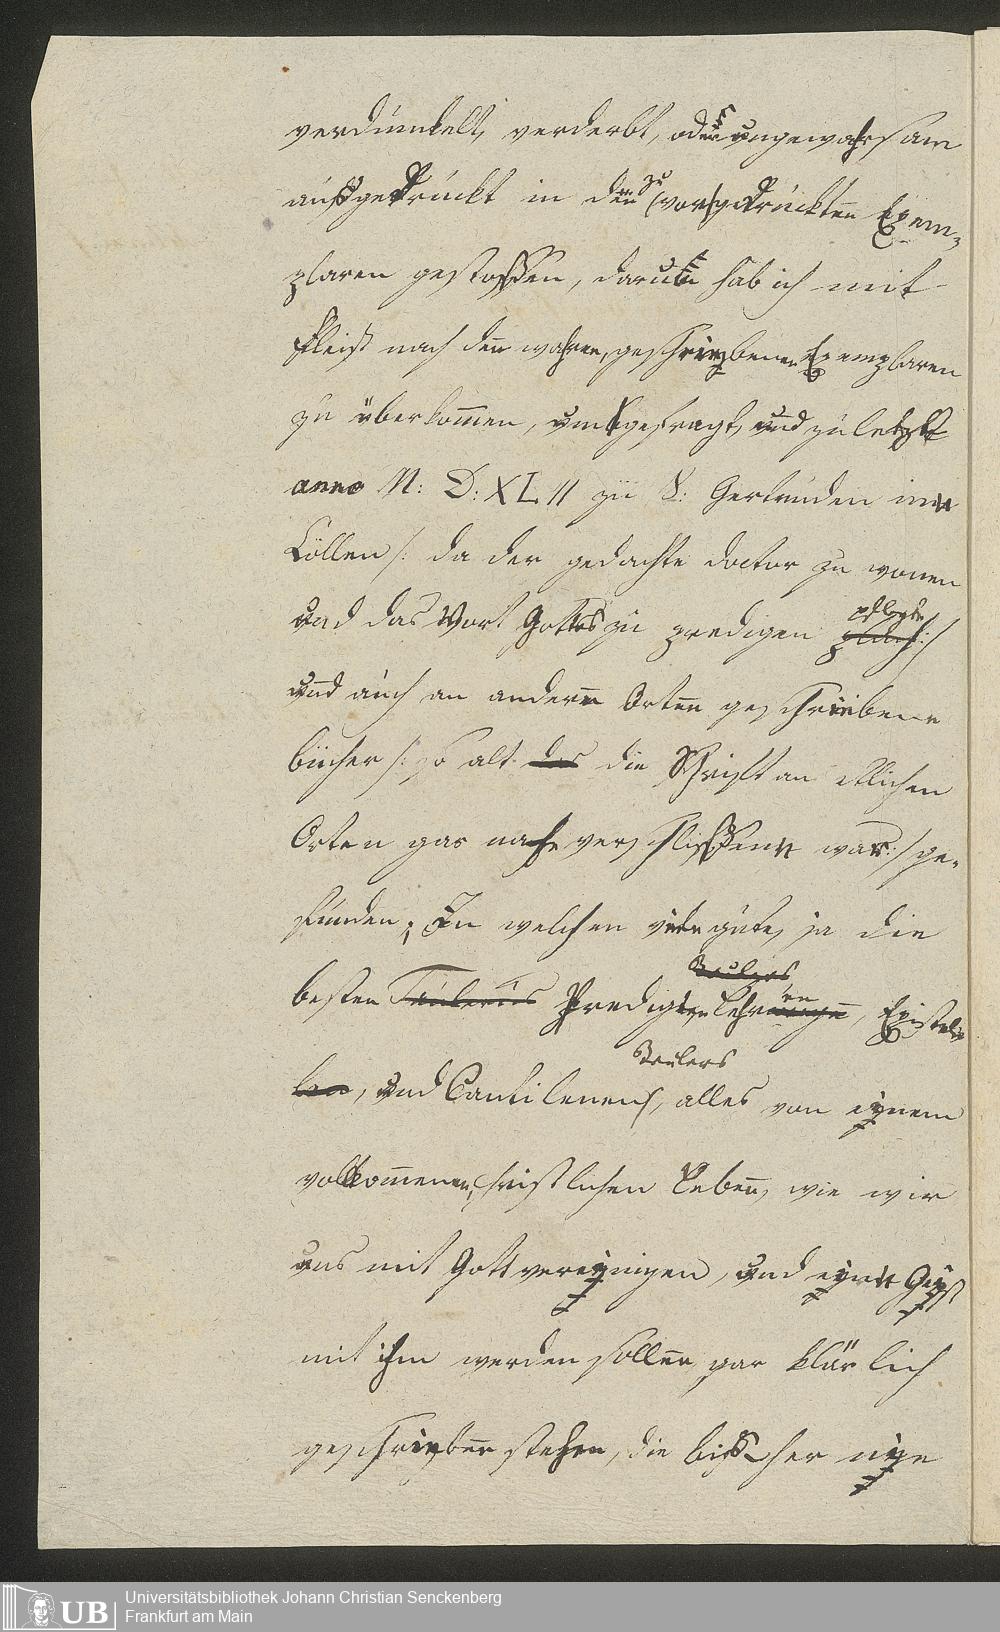 verdunkelt, verderbt, oder ungewahrsam
außgedruckt in den zu (vor) gedruckten Exem-
plaren gestossen, darum hab ich mit
Fleiß nach den wahren, geschriebenen Exemplaren
zu überkom̄en, umbgefragt, und zuletzt
anno M: D: XLII zu S: Gertruden inn
Cöllen /: da der gedachte doctor zu wonen
und das Wort Gottes zu predigen pflegte :/
und auch an anderen Orten geschriebene
bücher /: so alt das die Schrift an etlichen
Orten gar nahe verschlissen war :/ ge-
funden, In welchen viele gute, ja die
besten Taulerus Taulers Predigten Lehren, Episteln
, und Cantilenen Taulers, alles von eynem
volkom̄enen, christlichen Leben, wie wir
uns mit Gott vereynigen, und eyn Geyst
mit ihm werden sollen, gar klärlich
geschrieben stehen, die bißher nye
Universitätsbibliothek Johann Christian Senckenberg
UB Frankfurt am Main